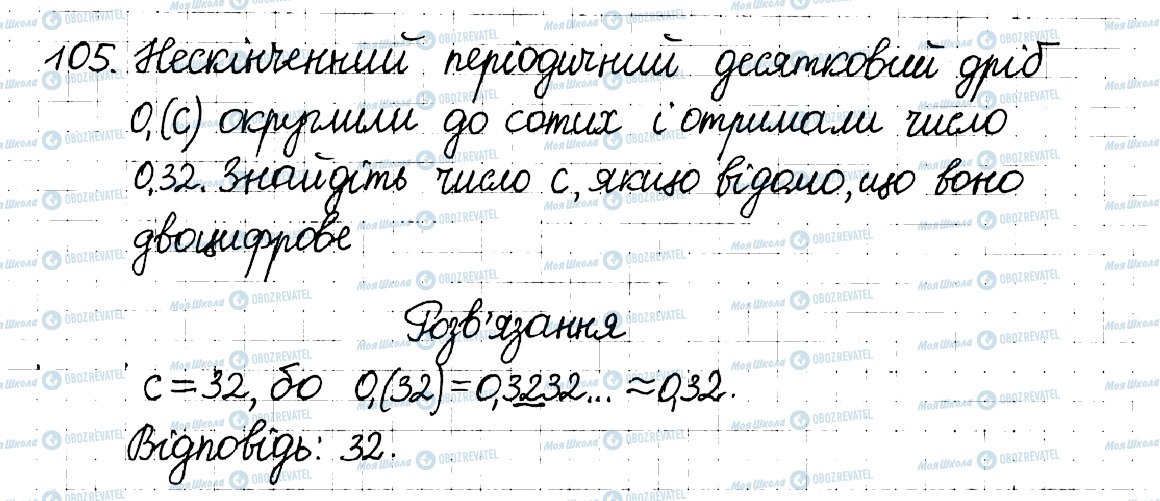 105. Нескінченний періодичний десятковий дріб
0,(c) округлили до сотих і отримали число
0,32. Знайдіть число c, якщо відомо, що воно
двоцифрове
Розв'язання
c = 32, бо 0,(32) = 0,3232... ≈ 0,32.
Відповідь: 32.